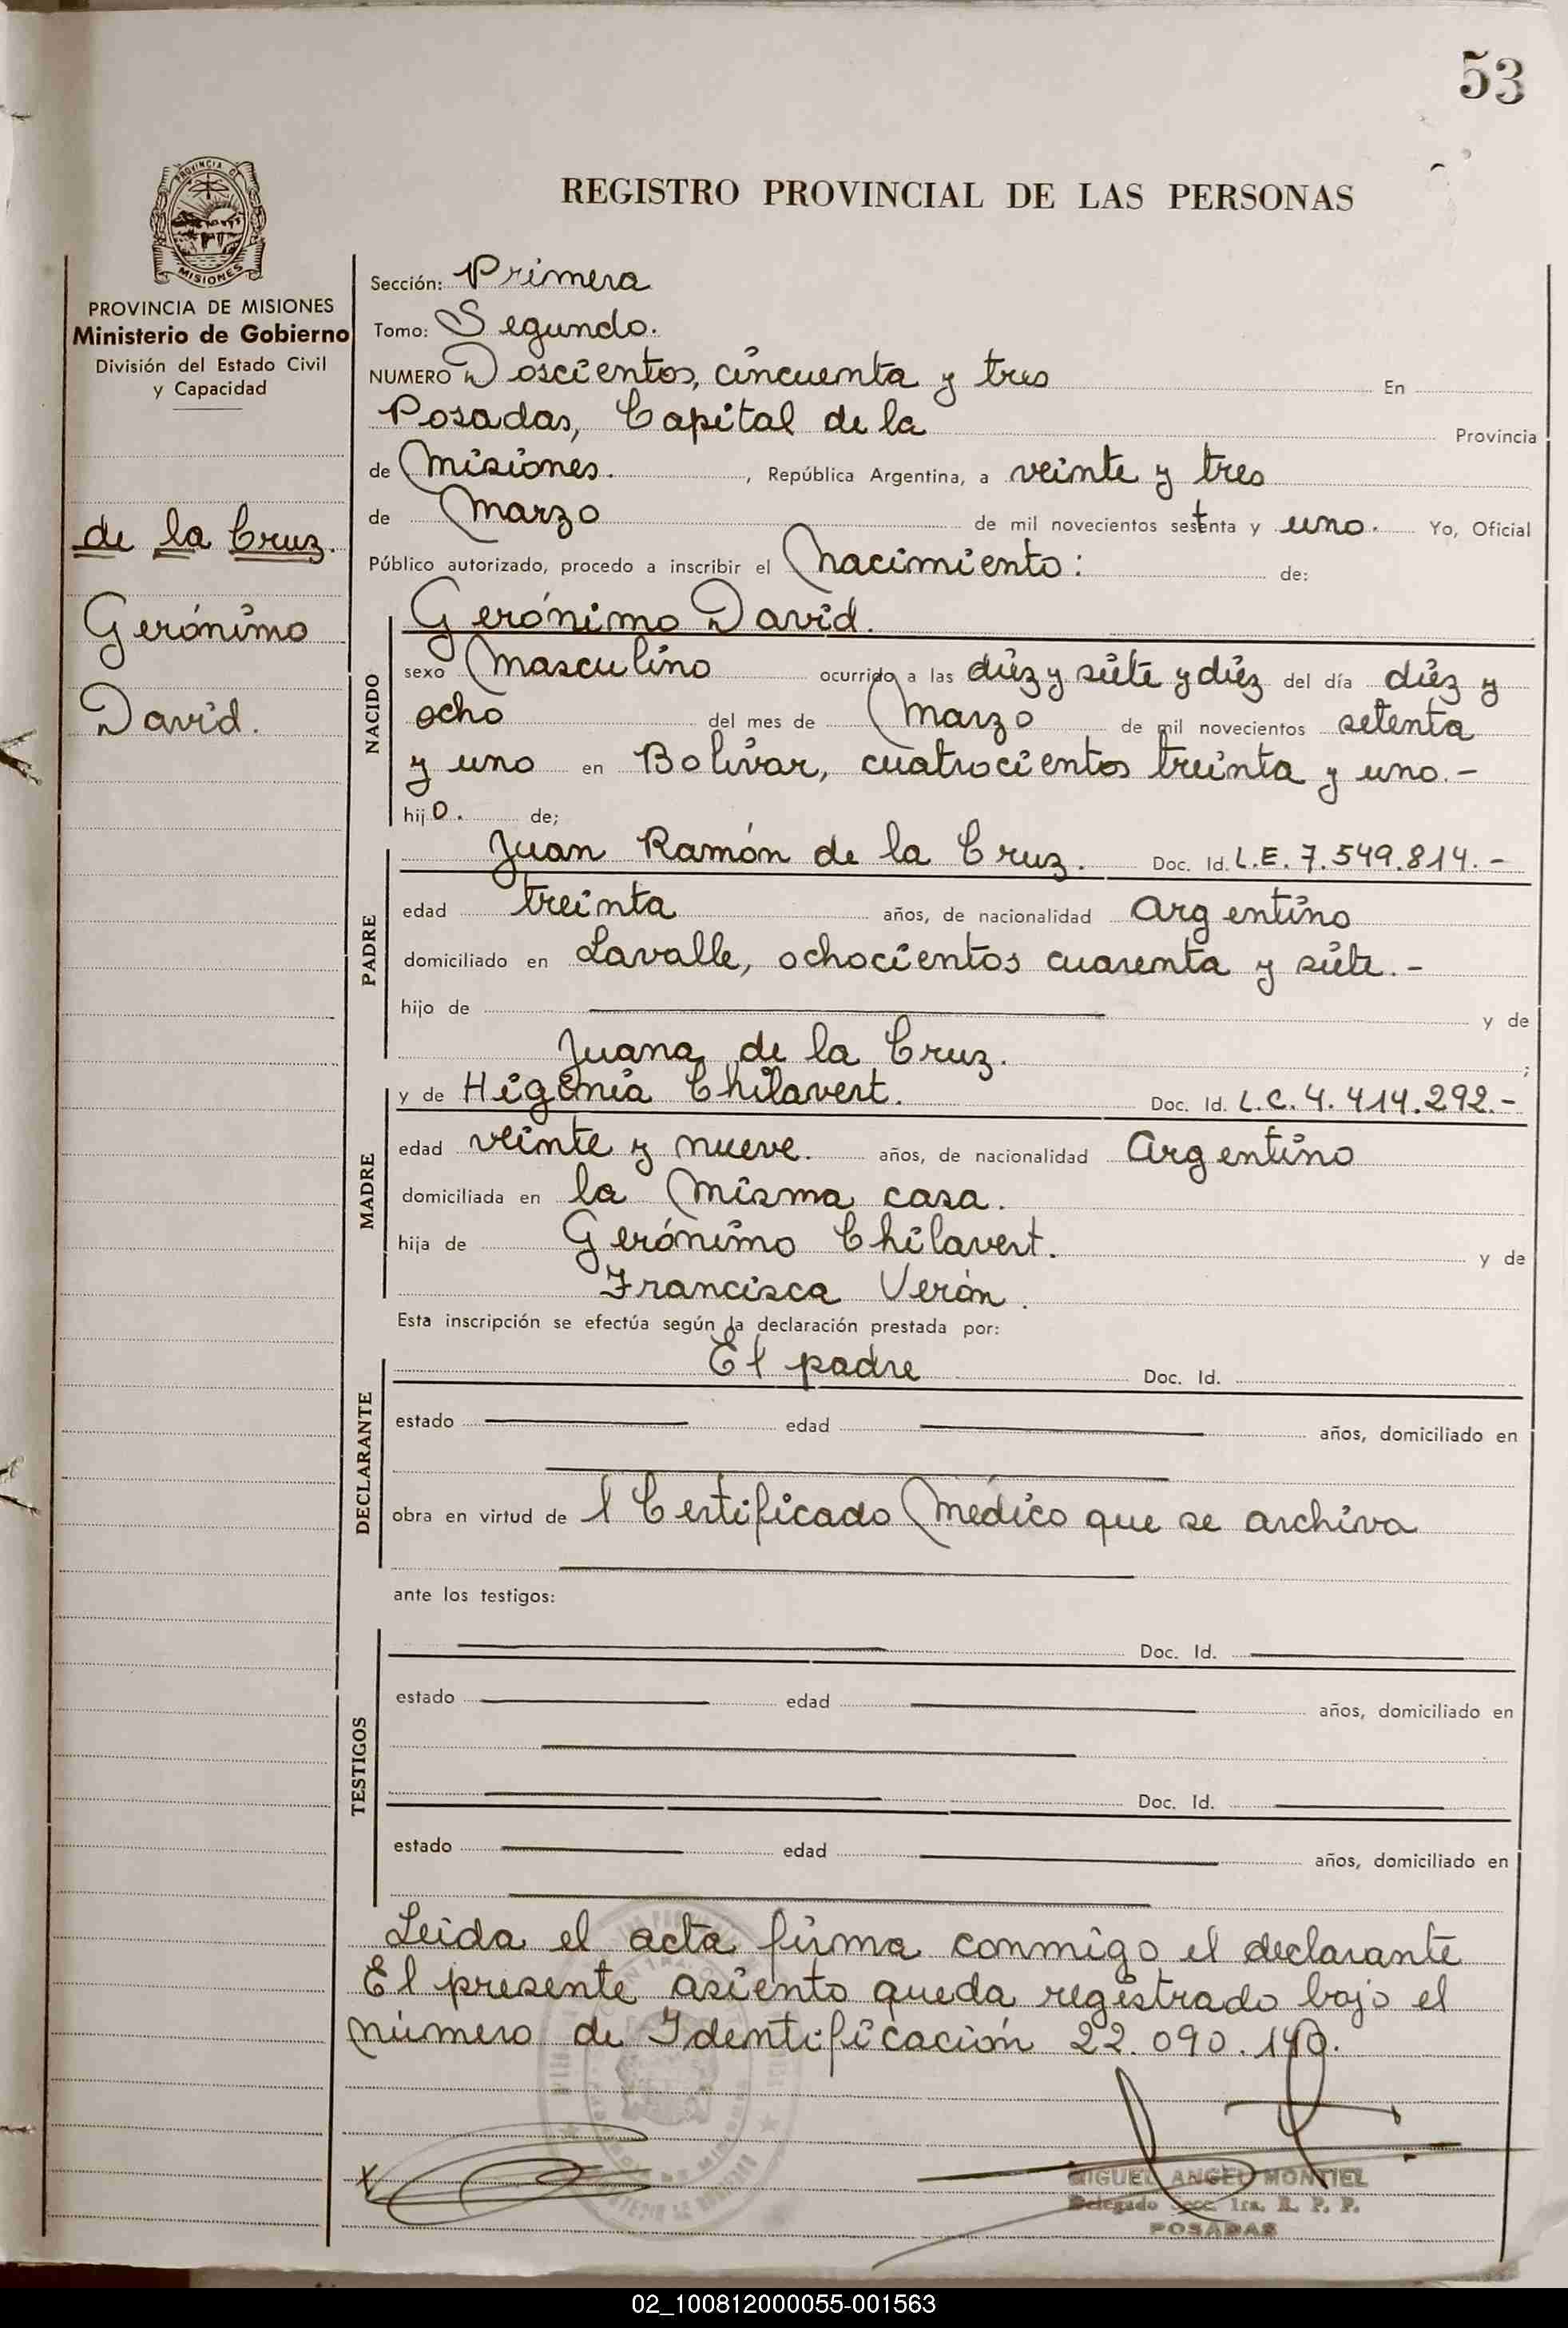 53
PROVINCIA DE
MISIONES
PROVINCIA DE MISIONES
Ministerio de Gobierno
División del Estado Civil
y Capacidad
de la Cruz.
Gerónimo
David.
REGISTRO PROVINCIAL DE LAS PERSONAS
Sección: Primera
Tomo: Segundo.
NUMERO Doscientos, cincuenta y tres En
Posadas, Capital de la Provincia
de Misiones. , República Argentina, a veinte y tres
de Marzo de mil novecientos setenta y uno. Yo, Oficial
Público autorizado, procedo a inscribir el Nacimiento: de:
NACIDO
Gerónimo David.
sexo Masculino ocurrido a las diez y siete y diez del día diez y
ocho del mes de Marzo de mil novecientos setenta
y uno en Bolívar, cuatrocientos treinta y uno.-
hijo. de;
PADRE
Juan Ramón de la Cruz. Doc. Id. L.E. 7.549.814.-
edad treinta años, de nacionalidad Argentino
domiciliado en Lavalle, ochocientos cuarenta y siete.-
hijo de y de
Juana de la Cruz. ;
MADRE
y de Higinia Chilavert. Doc. Id. L.C. 4.414.292.-
edad veinte y nueve. años, de nacionalidad Argentino
domiciliada en la Misma casa.
hija de Gerónimo Chilavert. y de
Francisca Verón.
Esta inscripción se efectúa según la declaración prestada por:
DECLARANTE
El padre Doc. Id.
estado edad años, domiciliado en
obra en virtud de l Certificado Médico que se archiva
ante los testigos:
TESTIGOS
Doc. Id.
estado edad años, domiciliado en
Doc. Id.
estado edad años, domiciliado en
Leida el acta firma conmigo el declarante
El presente asiento queda registrado bajo el
número de Identificación 22.090.140.
MIGUEL ANGEL MONTIEL
Delegado Secc. 1ra. R. P. P.
POSADAS
02_100812000055-001563